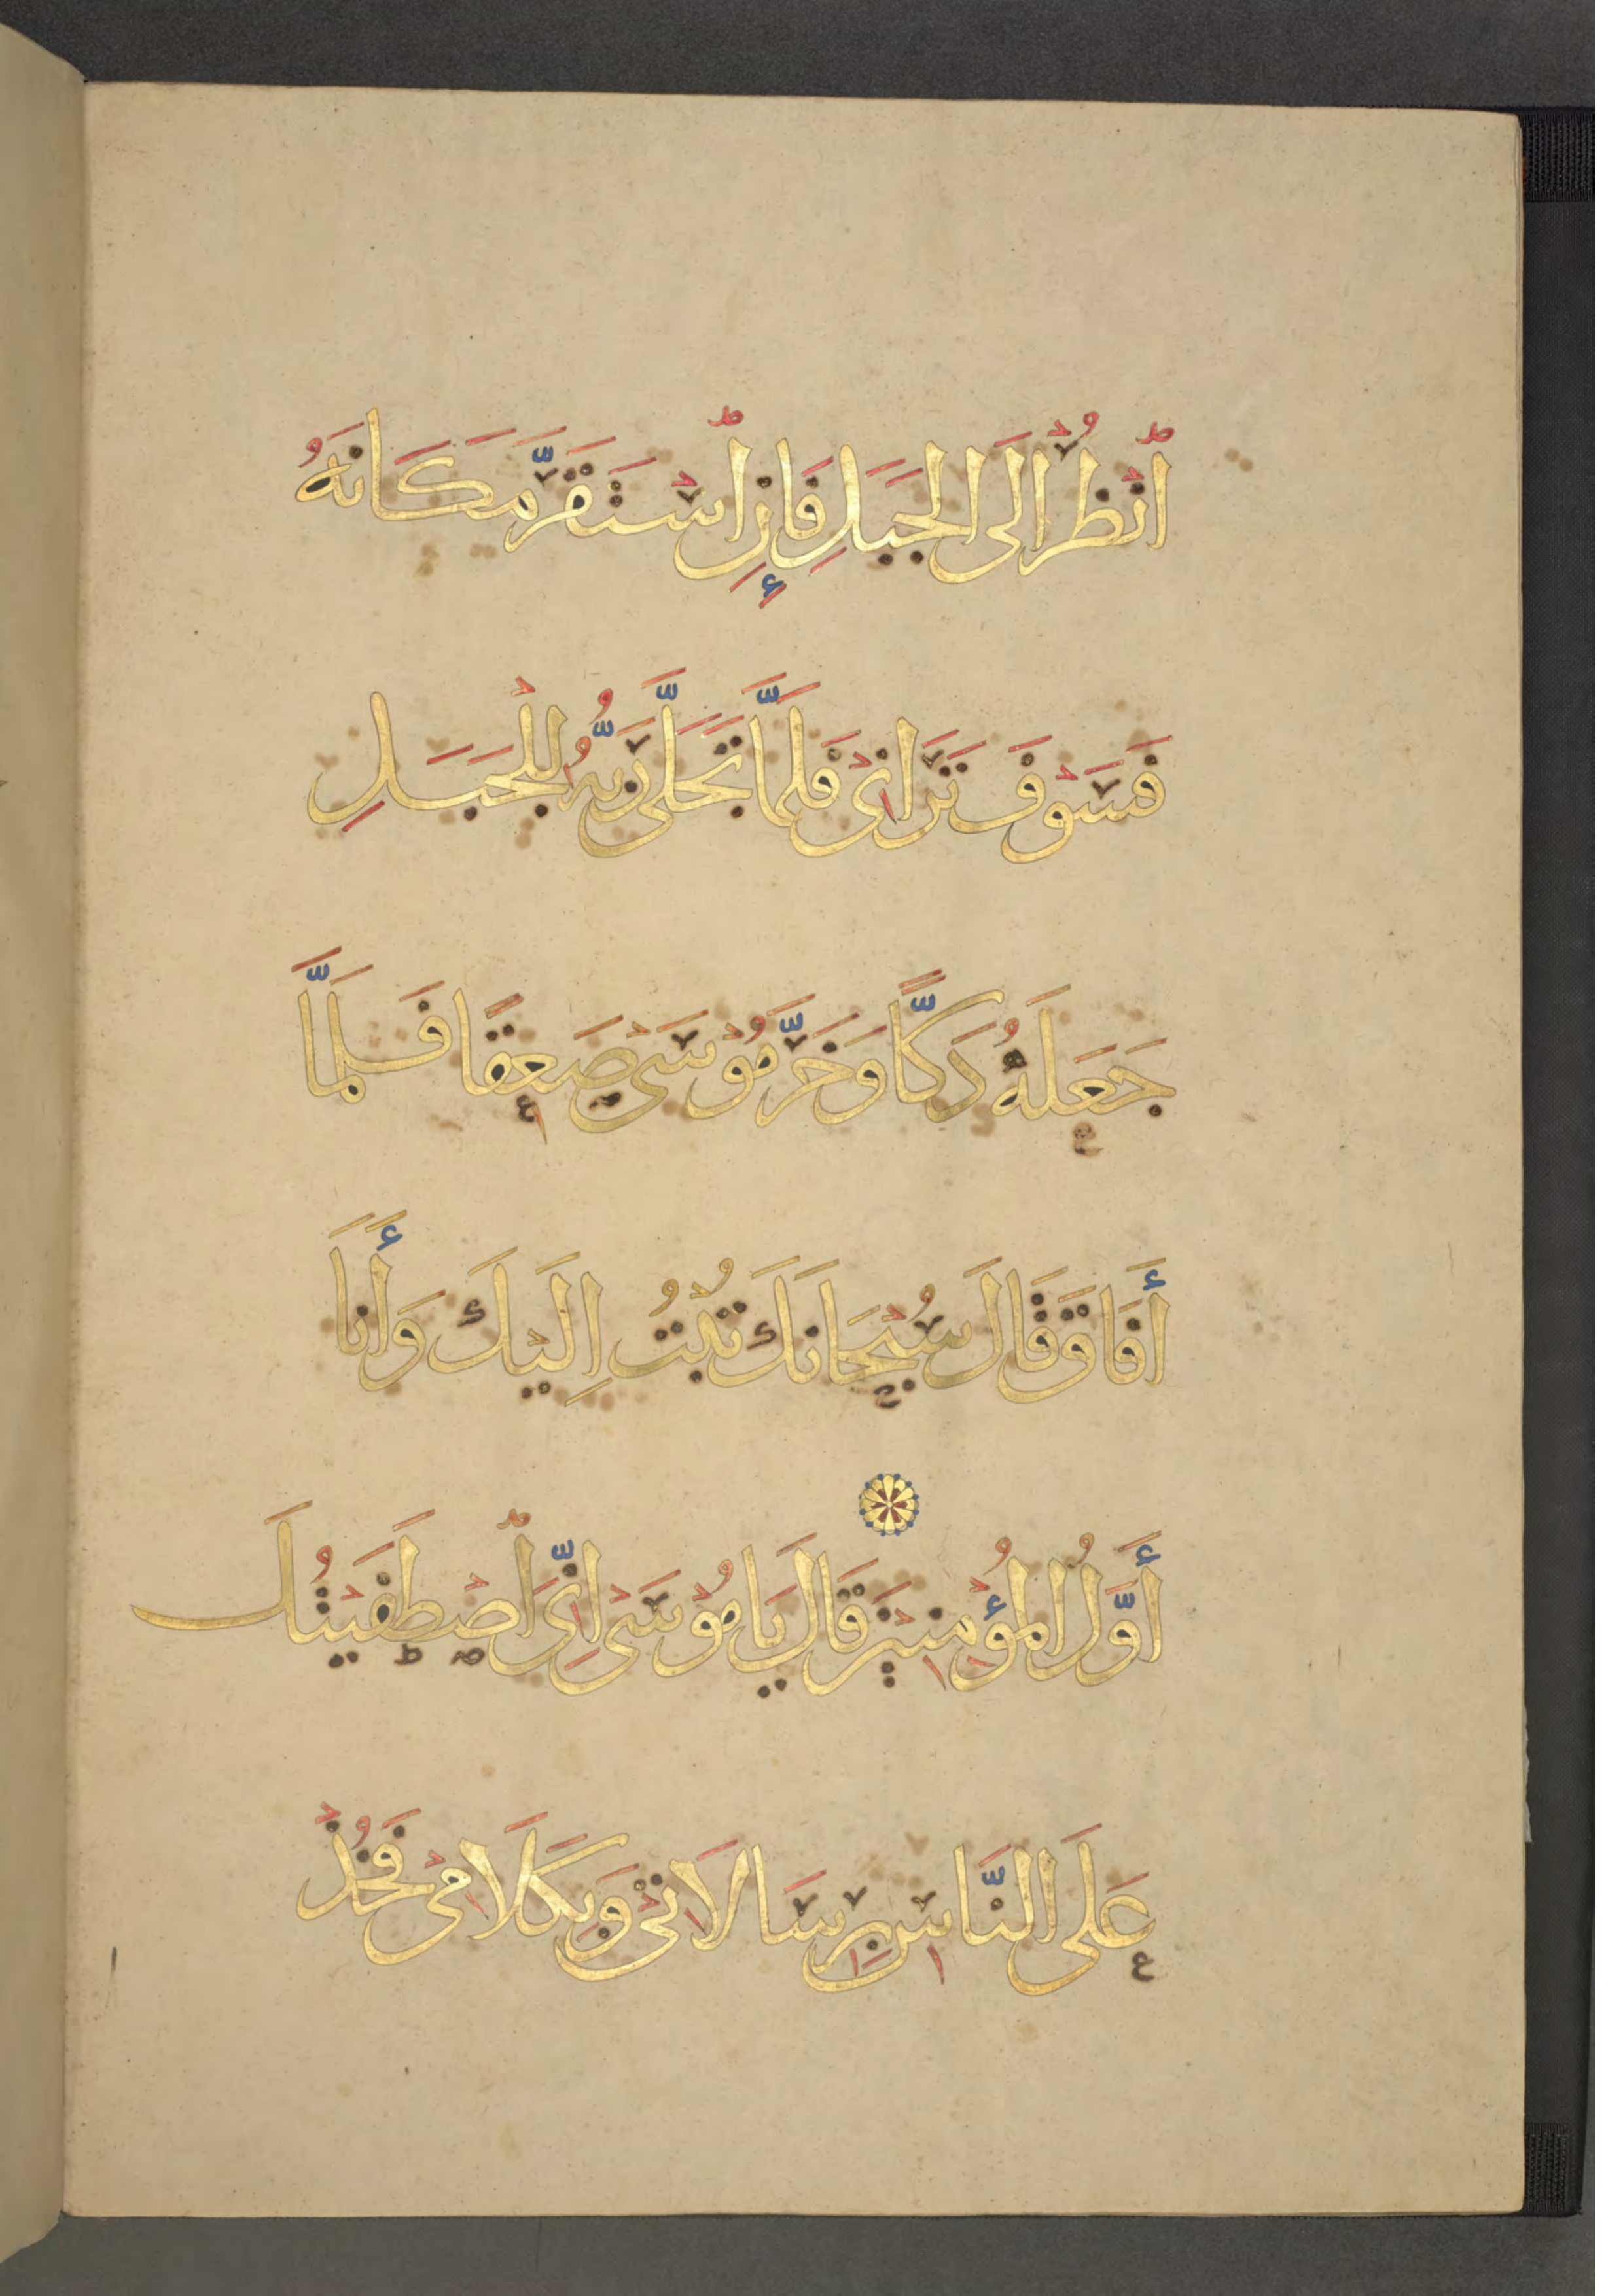 اُنْظُرْ اِلَى الْجَبَلِ فَإِنِ اسْتَقَرَّ مَكَانَهُ
فَسَوْفَ تَرَانِىْ فَلَمَّا تَجَلَّى رَبُّهُ لِلْجَبَلِ
جَعَلَهُ دَكًّا وَخَرَّ مُوْسَىْ صَعِقًا فَلَمَّا
أَفَاقَ قَالَ سُبْحَانَكَ تُبْتُ اِلَيْكَ وَأَنَا
أَوَّلُ الْمُؤْمِنِيْنَ قَالَ يَا مُوْسَىْ اِنِّى اصْطَفَيْتُكَ
عَلَى النَّاسِ بِرِسَالَاتِىْ وَبِكَلَامِىْ فَخُذْ